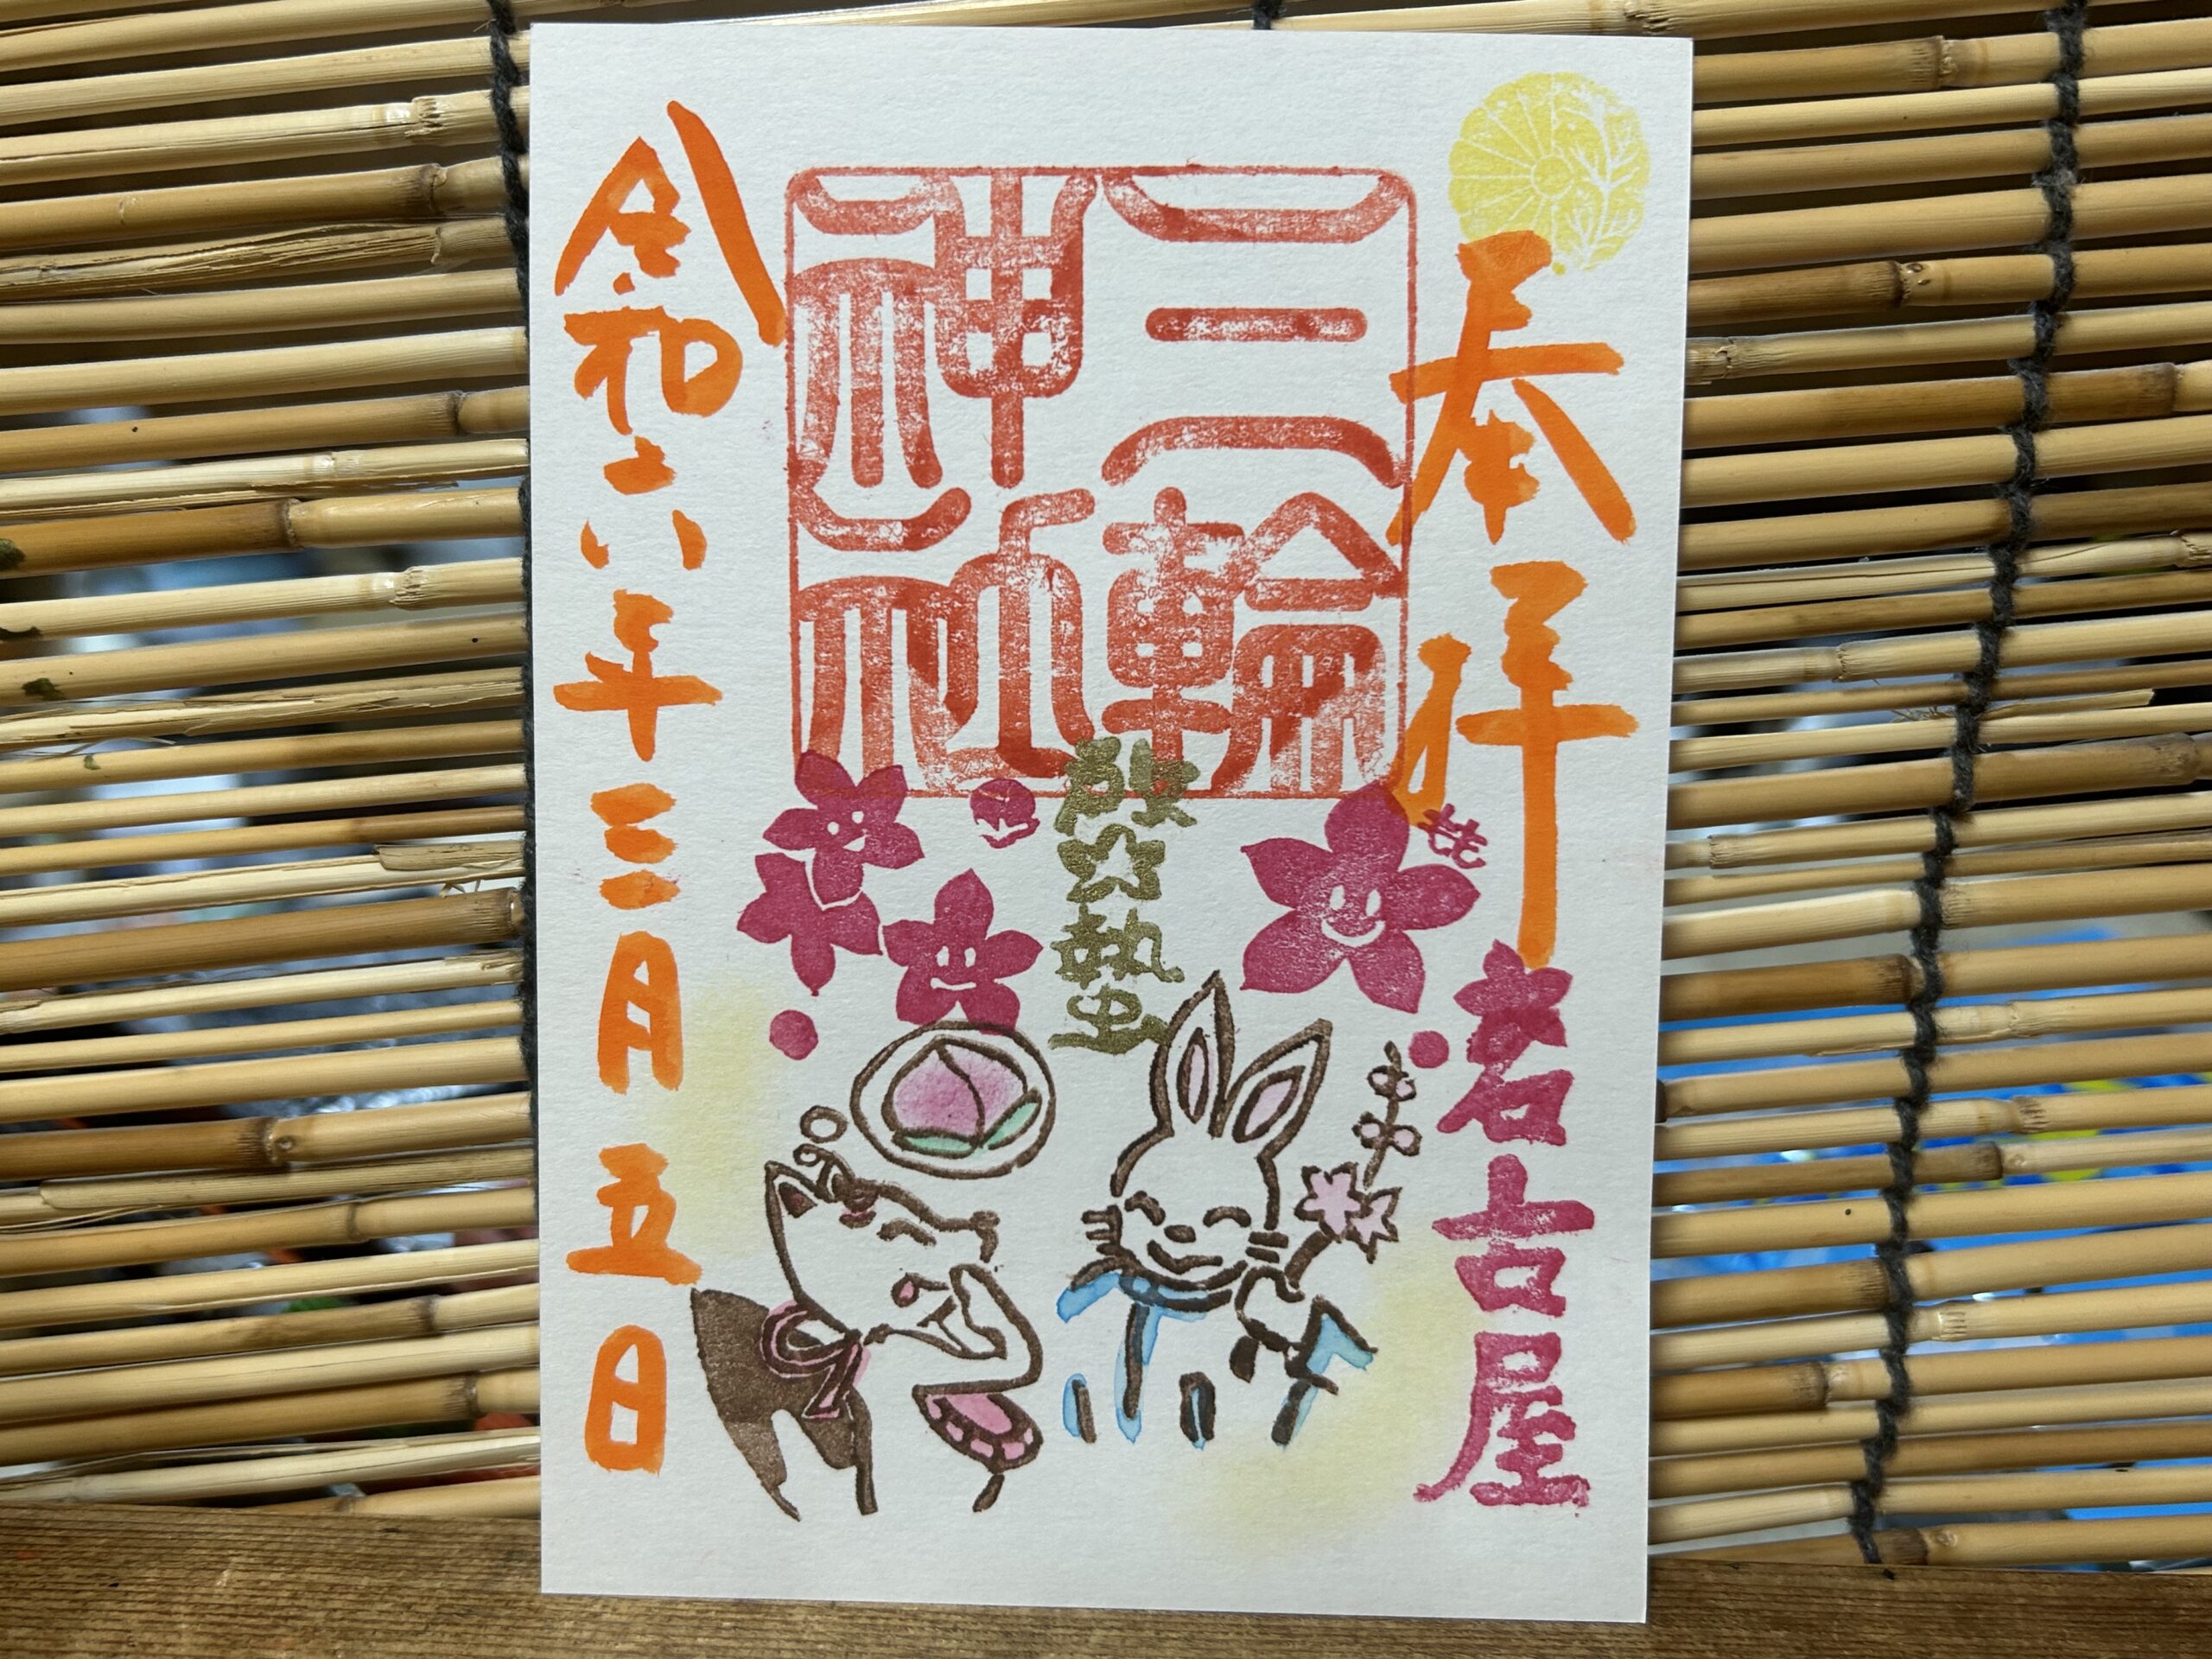 奉拝
もも
名古屋
三輪
神社
啓蟄
令和六年三月五日